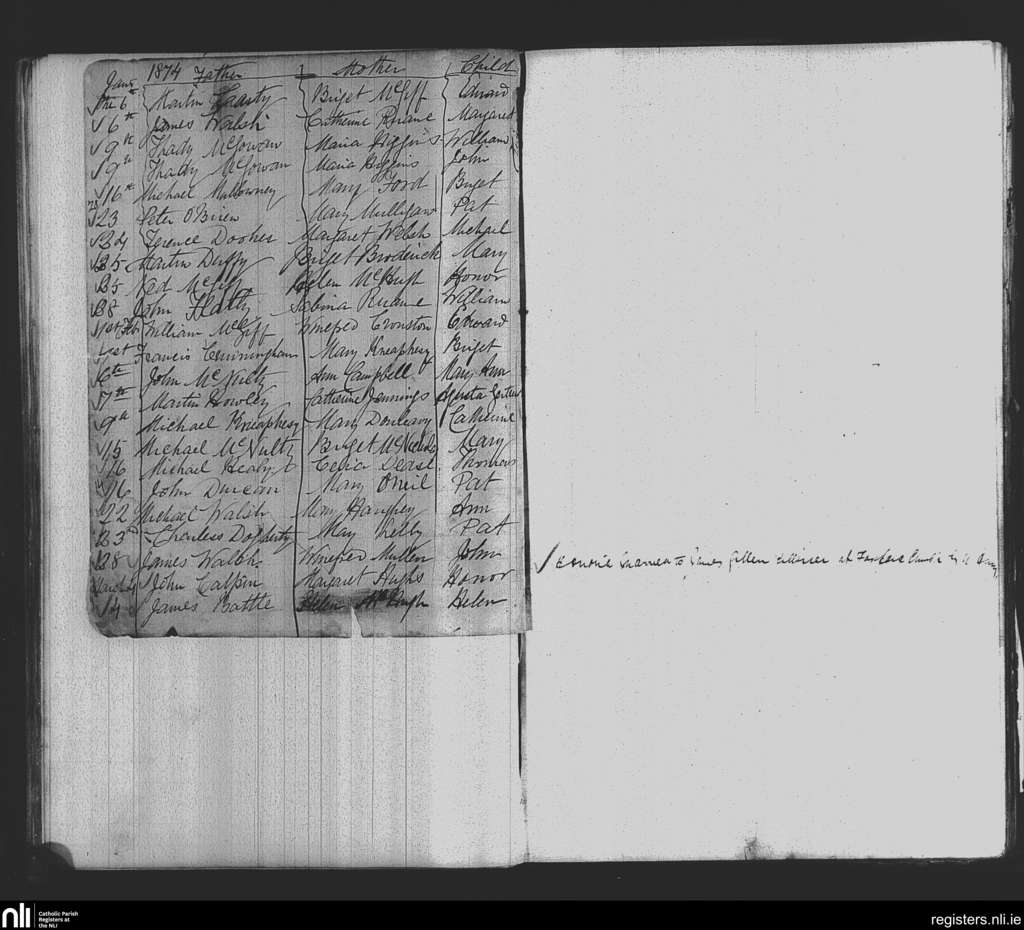 Jany 1874 Father Mother Child
the 6 Martin Briget McGiff Edward
6th James Walsh Catherine Ruane Margaret
9th Thady McGowan Maria Higgins William
9th Thady McGowan Maria Higgins John
16th Michael Mullowney Mary Ford Briget
23 Peter O'Brien Mary Mulligan Pat
24 Terence Dooher Margaret Welsh Michael
25 Martin Duffy Briget Broderick Mary
25 Ned McGiff Helen McHugh Honor
28 John Flatly Sabina Ruane William
1st Feb William McGiff Winefred Cronston Edward
1st Francis Cunningham Mary Kneaphesy Briget
6th John McNulty Ann Campbell Mary Ann
7th Martin Howley Catherine Jennings
9th Michael Kneaphesy Mary Donleavy Catherine
15 Michael McNulty Briget McNicholas Mary
16 Michael Healy Celia Deasl Thomas
16 John Duncan Mary Oneil Pat
22 Michael Walsh Mary Haughey Ann
23rd Charless Dogherty Mary Kelly Pat
28 James Walsh Winefred Mullen John
March John Calpin Margaret Hughs Honor
14 James Battle Helen McHugh Helen
married to James at
nli Catholic Parish
Registers at
the NLI
registers.nli.ie